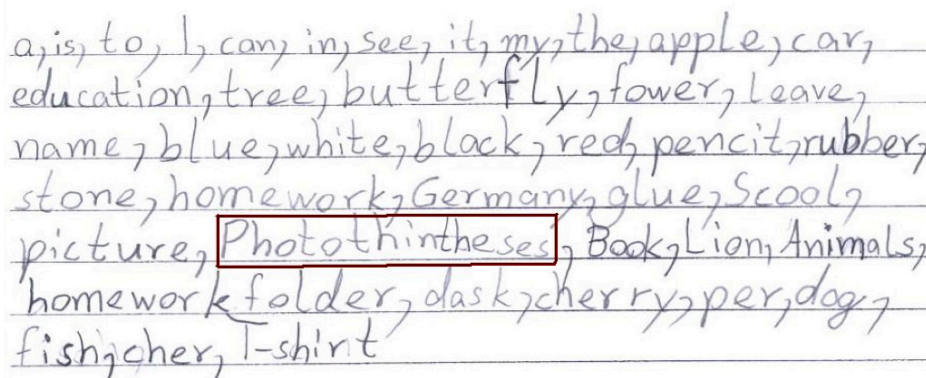 a, is, to, I, can, in, see, it, my, the, apple, car,
education, tree, butterfly, fower, leave,
name, blue, white, black, red, pencit, rubber,
stone, homework, Germany, glue, Scool,
picture, Photothintheses, Book, Lion, Animals,
homework folder, dask, cherry, per, dog,
fish, cher, T-shirt